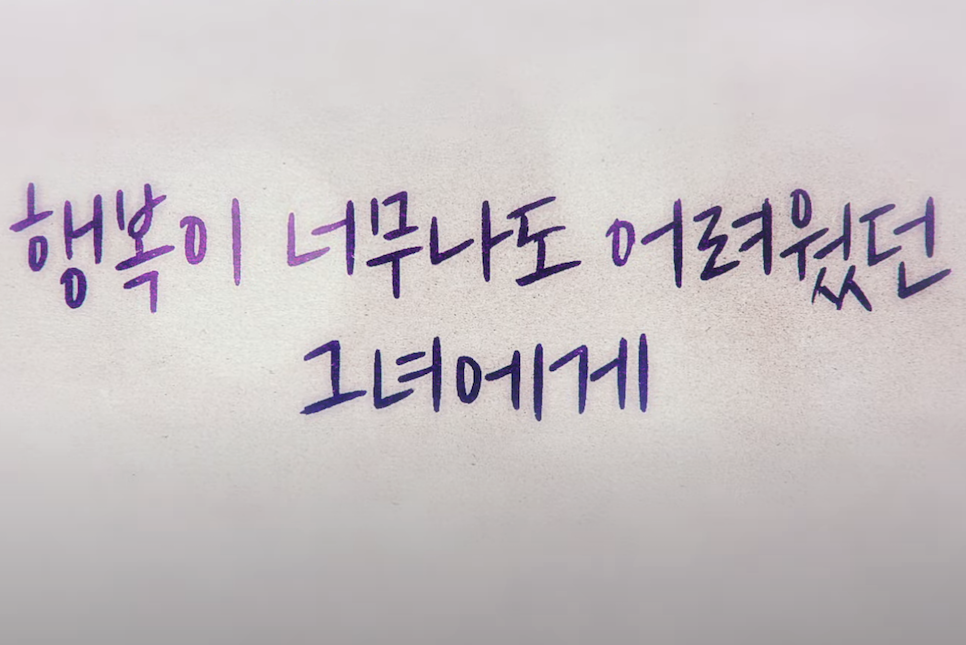 행복이 너무나도 어려웠던
그녀에게